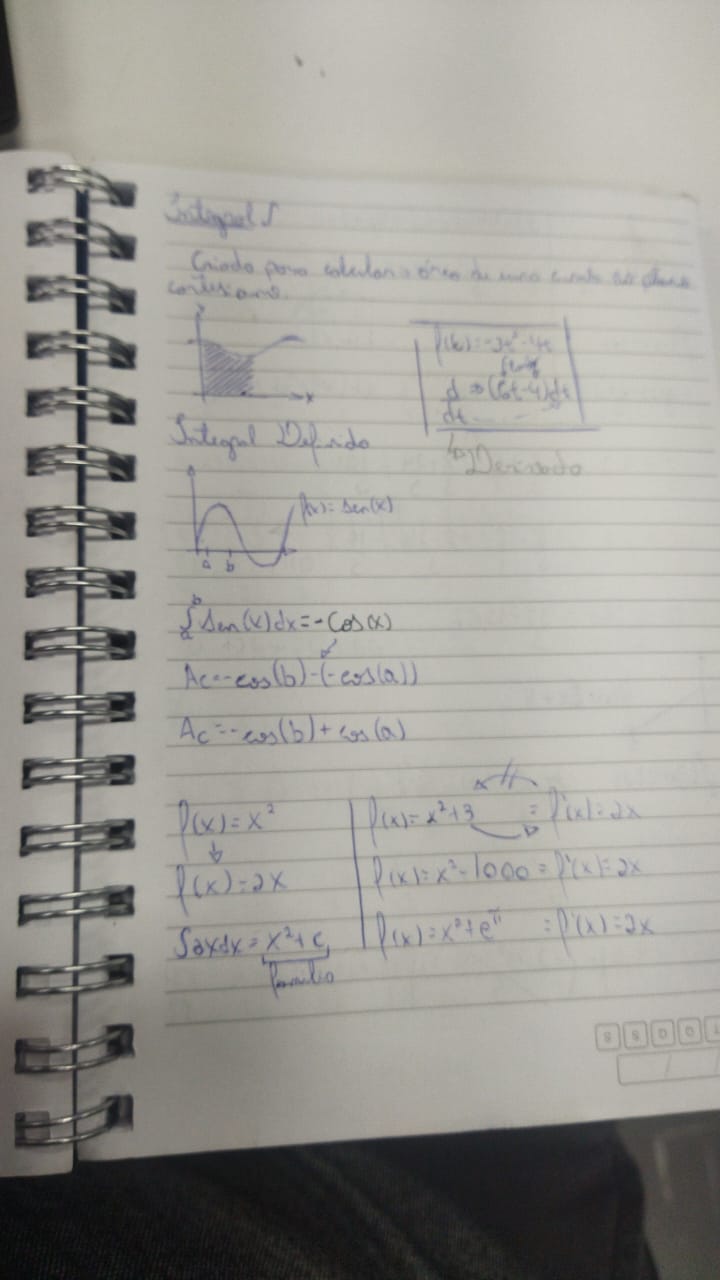 Integral ∫
Criado para calcular a área de uma curva no plano
cartesiano.
y
x
f(t)=-3t²-4t
d ⇒(6t-4)dt
dt
Derivada
Integral Definido
f(x)=sen(x)
a b
∫ₐᵇ sen(x)dx=-cos(x)
Ac=-cos(b)-(-cos(a))
Ac=-cos(b)+cos(a)
f(x)=x²
f(x)=2x
∫2xdx=x²+c
família
f(x)=x²+3 = f'(x)=2x
f(x)=x²-1000 = f'(x)=2x
f(x)=x²+e^π = f'(x)=2x